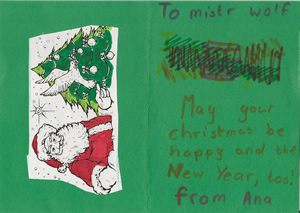 To mistr wolf
May your
christmas be
happy and the
New Year, too!
from Ana